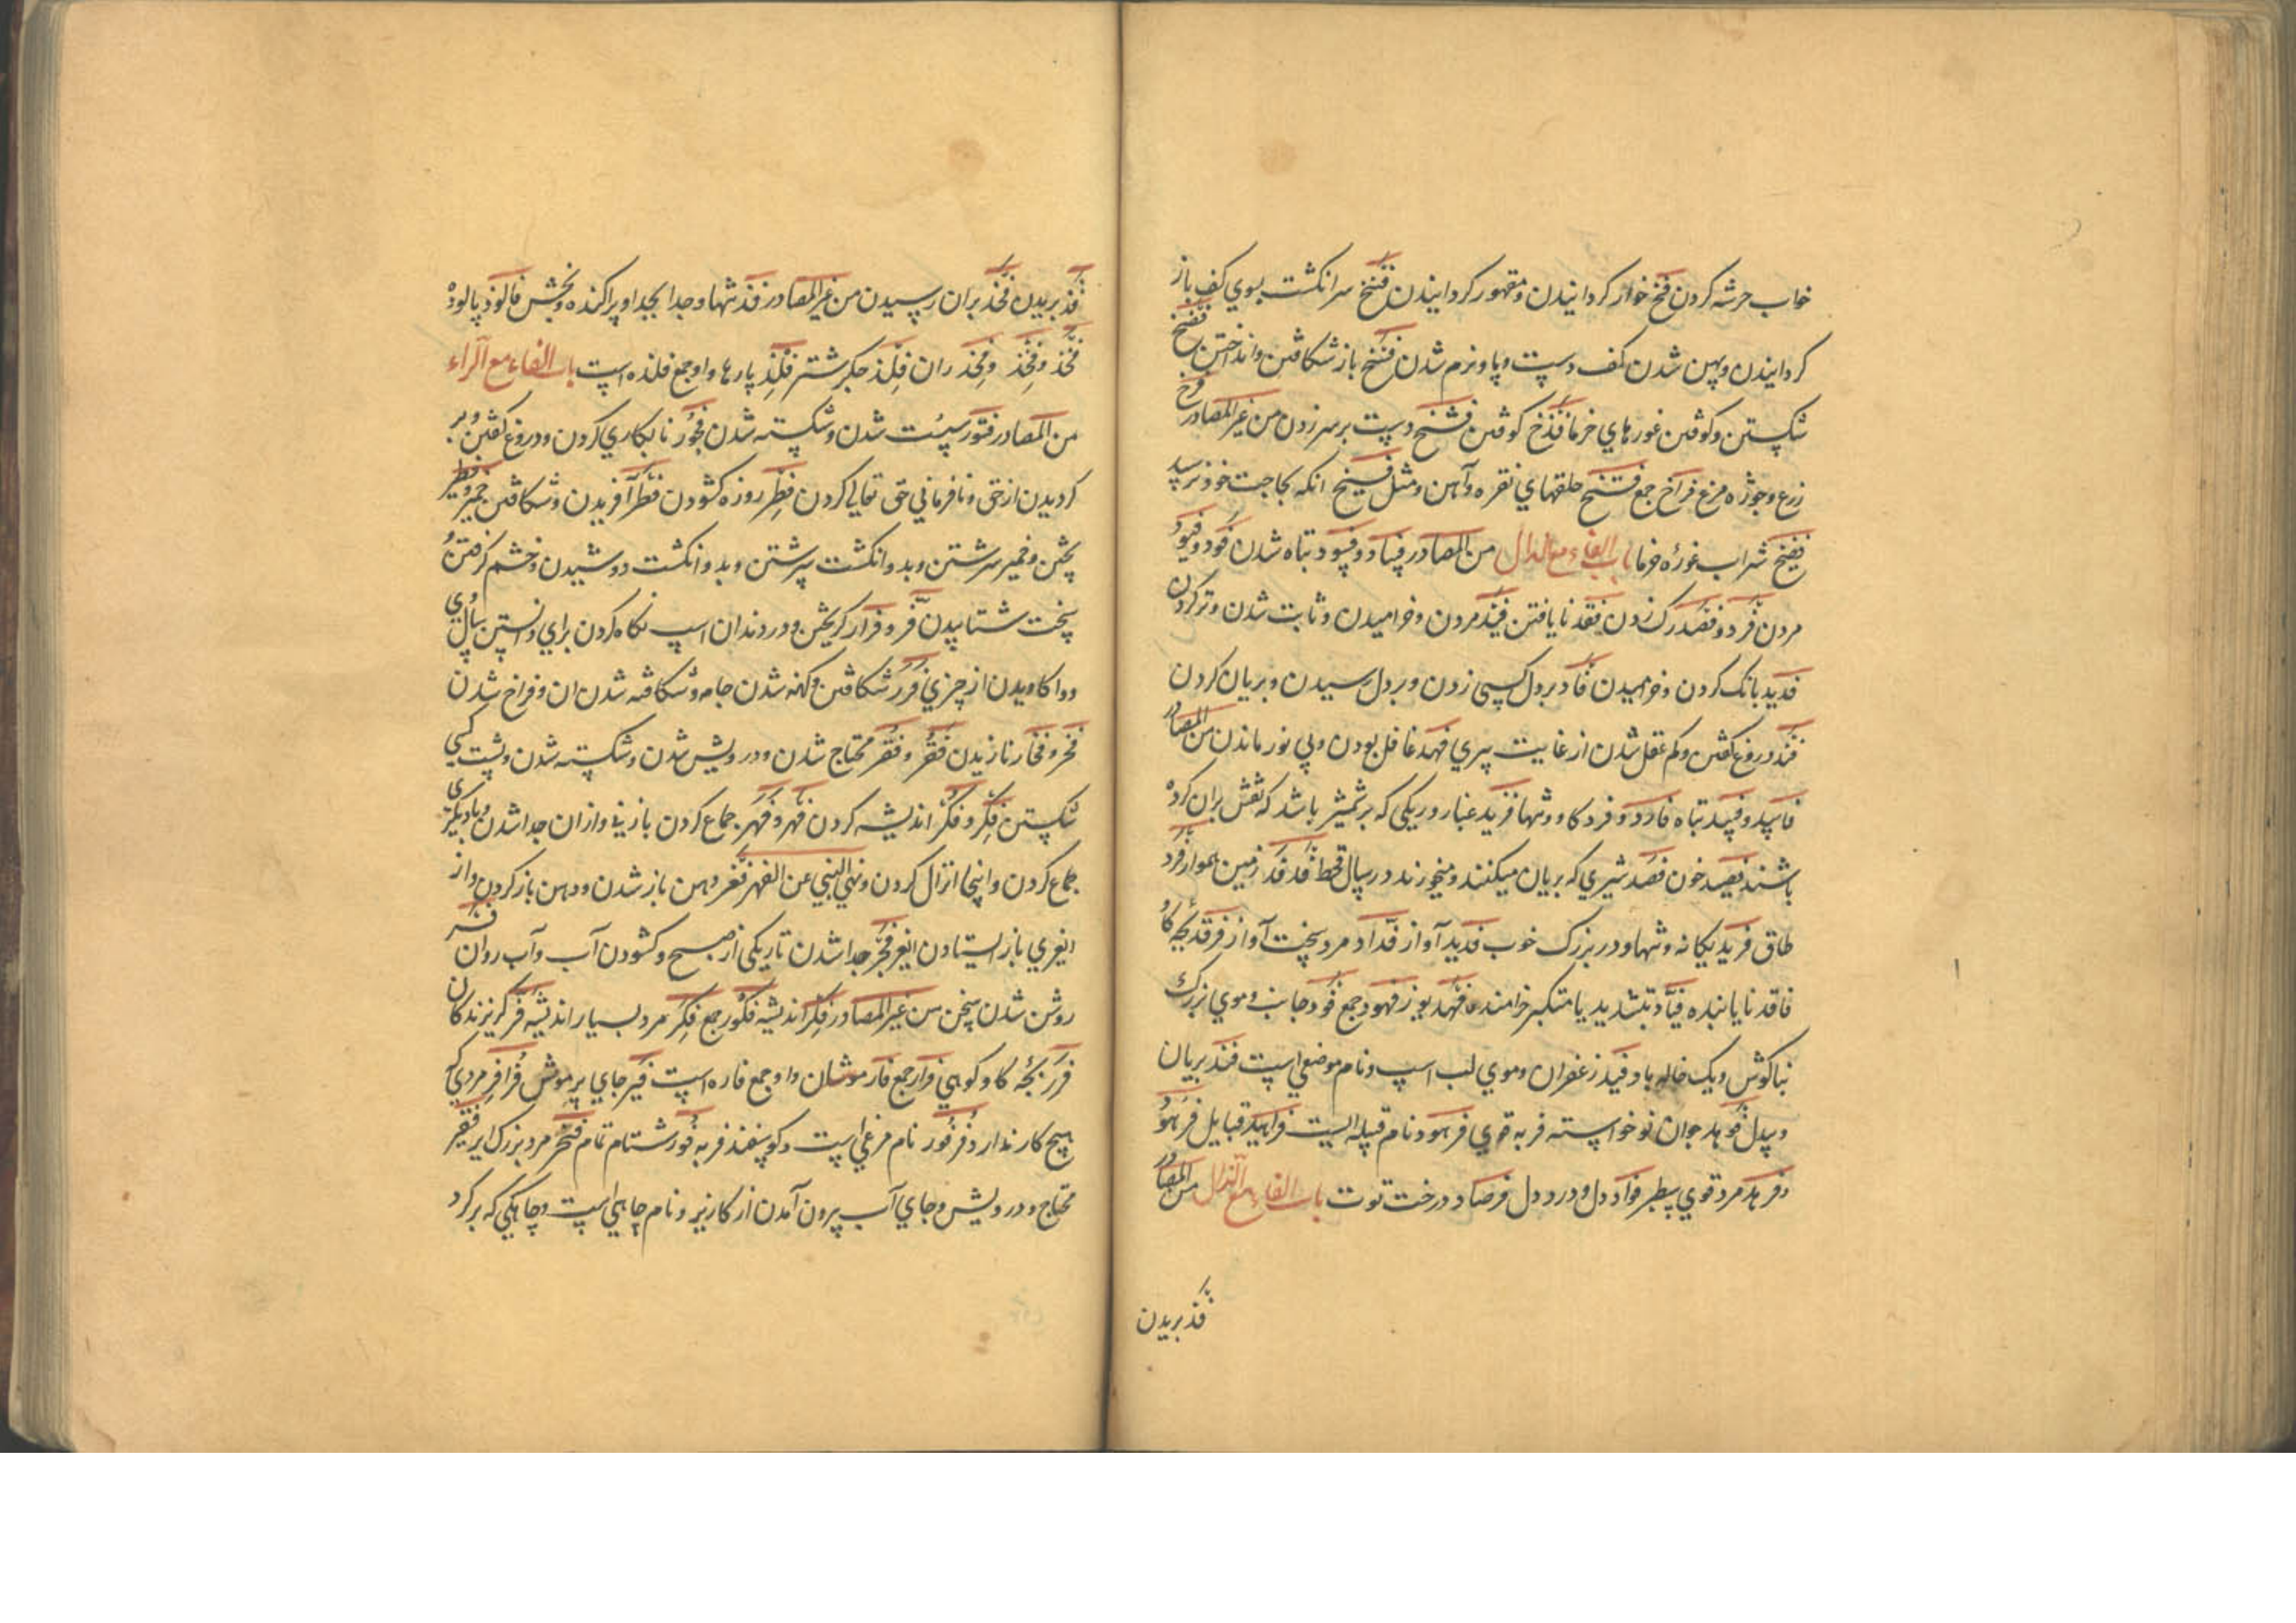 خواب خرشه کردن فخ خوار کردانیدن و مقهور کردانیدن فتخ سر انکشت بسوی کف باز
کردانیدن و پهن شدن کف دست و پا و نرم شدن فسخ باز شکافتن و انداختن فضخ
شکستن و کوفتن غورهای خرما فذخ کوفتن فشخ دست بر سر زدن من غیر المصادر فرخ
زرع و جوژه مرغ فراخ جمع فتخ حلقهای نقره و آهن و مثل فسیخ انکه بحاجت خود نرسد
فضیخ شراب غوره خرما باب الفاء مع الدال من المصادر فساد و فسود تباه شدن فود و فیود
مردن فرد و فصد رک زدن فقد نایافتن فید مردن و خرامیدن و ثابت شدن و تر کردن
فدید بانک کردن و خرامیدن فأد بر دل کسی زدن و بر دل رسیدن و بریان کردن
فند دروغ کفتن و کم عقل شدن از غایت پیری فهد غافل بودن و بی نور ماندن من المصادر
فاسد و فسید تباه فارد و فرد کاو و تنها فرند غبار و ریکی که بر شمشیر باشد که نقش بران کرده
باشند فصید خون فصد شیری که بریان میکنند و میخورند در سال قحط فدفد زمین هموار فرد
طاق فرید یکانه و تنها و در بزرک خوب فدید آواز فداد مرد سخت آواز فرقد بچه کاو
فاقد نایابنده فیاد بتشدید یا متکبر خرامنده فهد یوز فهود جمع فود جانب و موی بزرک
بناکوش و یک خاله بار فید زعفران و موی لب اسپ و نام موضعی است فئد بریان
و بیدل فوهد جوان نو خواسته فربه قوی فرهود نام قبیله ایست فراهید قبایل فرهود
و فرهد مرد قوی سطبر فواد دل و درد دل فرصاد درخت توت باب الفاء مع الذال من المصادر
فذ بریدن
فذ بریدن فخذ بران رسیدن من غیر المصادر فذ تنها و جدا جدا و پراکنده و بخش فالوذ پالوده
فخذ و فخذ و فخذ ران فلذ جکر شتر فلذ پارها و او جمع فلذه است باب الفاء مع الراء
من المصادر فتور سست شدن و شکسته شدن فجور نابکاری کردن و دروغ کفتن و بر
کردیدن از حق و نافرمانی حق تعالی کردن فطر روزه کشودن فطر آفریدن و شکافتن خمیر و فطیر
پختن و خمیر سرشتن و بدو انکشت سرشتن و بدو انکشت دوشیدن و خشم کرفتن و
سخت شتابیدن فر و فرار کریختن و در دندان اسپ نکاه کردن برای دانستن سال وی
و وا کاویدن از چیزی فزر شکافتن و کهنه شدن جامه و شکافته شدن ان و فراخ شدن
فخر و فخار نازیدن فقر و فقر محتاج شدن و درویش شدن و شکسته شدن و پشت کسی
شکستن فکر و فکر اندیشه کردن فهر و فهر جماع کردن با زنی و ازان جدا شدن و با دیکری
جماع کردن و اینجا انزال کردن و نهی النبی عن الفهر فغر دهن باز شدن و دهن باز کردن و از
فجر جدا شدن تاریکی از صبح و کشودن آب و آب روان
روشن شدن سخن من غیر المصادر فکر اندیشه فکور جمع فکر مرد بسیار اندیشه فر کریزندکان
فرر بچه کاو کوهی فرار جمع فار موشان و او جمع فاره است فئر جای پر موش فرافر مردی که
هیچ کار ندارد فرفور نام مرغی است و کوسفند فربه فور شتام تمام فخر مرد بزرک ایر فقیر
محتاج و درویش و جای آب بیرون آمدن از کاریز و نام چاهی است و چاهکی که بر کرد